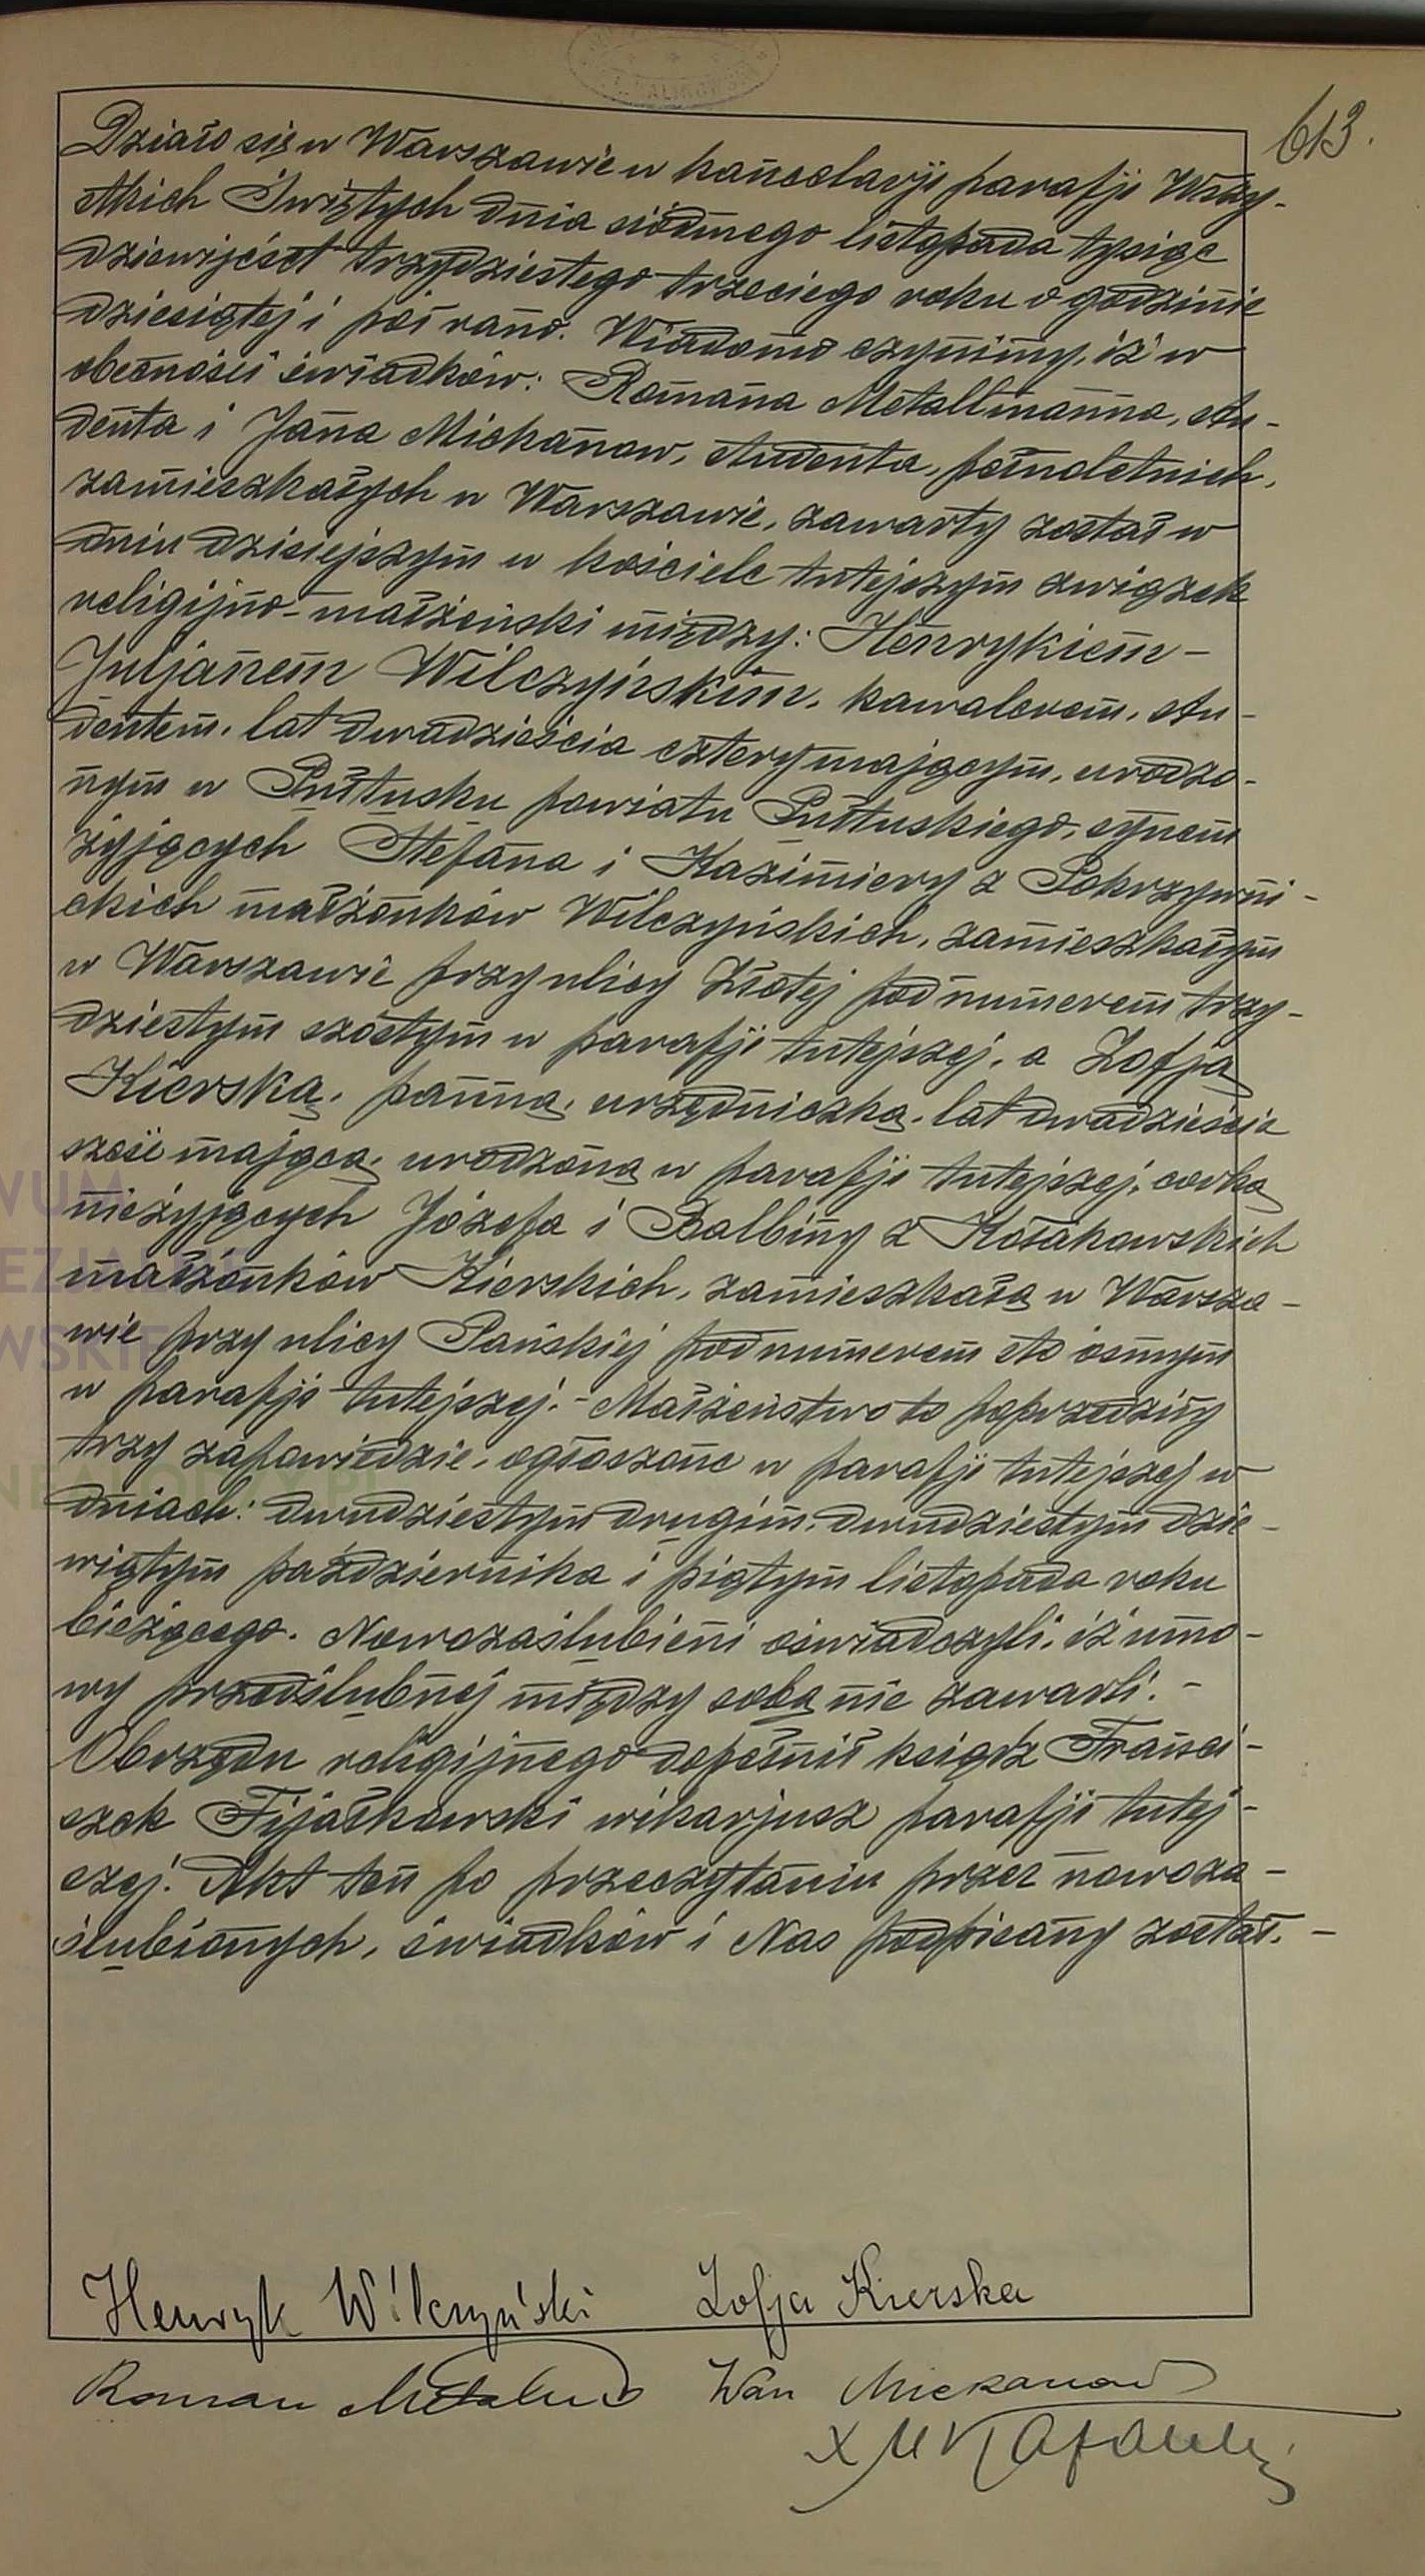 613.
Działo się w Warszawie w kancelarji parafji Wszy-
stkich Świętych dnia siódmego listopada tysiąc
dziewięćset trzydziestego trzeciego roku o godzinie
dziesiątej i pół rano. Wiadomo czynimy, iż w
obecności świadków: Romana Metallmanna, stu-
denta i Jana Mickanow, studenta, pełnoletnich,
zamieszkałych w Warszawie, zawarty został w
dniu dzisiejszym w kościele tutejszym związek
religijno-małżeński między: Henrykiem-
Juljanem Wilczyńskim, kawalerem, stu-
dentem, lat dwadzieścia cztery mającym, urodzo-
nym w Pułtusku powiatu Pułtuskiego, synem
żyjących Stefana i Kazimiery z Pokrzywni-
ckich małżonków Wilczyńskich, zamieszkałym
w Warszawie przy ulicy Złotej pod numerem trzy-
dziestym szóstym w parafji tutejszej, a Zofją
Kierską, panną, urzędniczką, lat dwadzieścia
sześć mającą, urodzoną w parafji tutejszej, córką
nieżyjących Józefa i Balbiny z Kosakowskich
małżonków Kierskich, zamieszkałą w Warsza-
wie przy ulicy Pańskiej pod numerem sto ósmym
w parafji tutejszej. - Małżeństwo to poprzedziły
trzy zapowiedzie, ogłoszone w parafji tutejszej w
dniach: dwudziestym drugim, dwudziestym dzie-
wiątym października i piątym listopada roku
bieżącego. Nowozaślubieni oświadczyli, iż umo-
wy przedślubnej między sobą nie zawarli. -
Obrzędu religijnego dopełnił ksiądz Franci-
szek Fijałkowski wikarjusz parafji tutej-
szej. Akt ten po przeczytaniu przez nowoza-
ślubionych, świadków i Nas podpisany został. -
Henryk Wilczyński Zofja Kierska
Roman Jan Mickanow